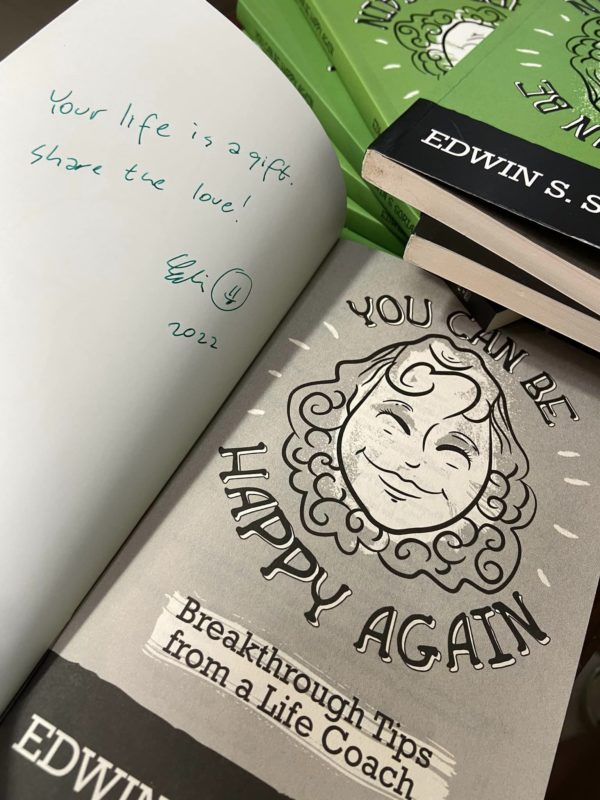 Your life is a gift.
Share the love!
2022
YOU CAN BE
HAPPY AGAIN
Breakthrough Tips
from a Life Coach
EDWIN
EDWIN S. S
N BE